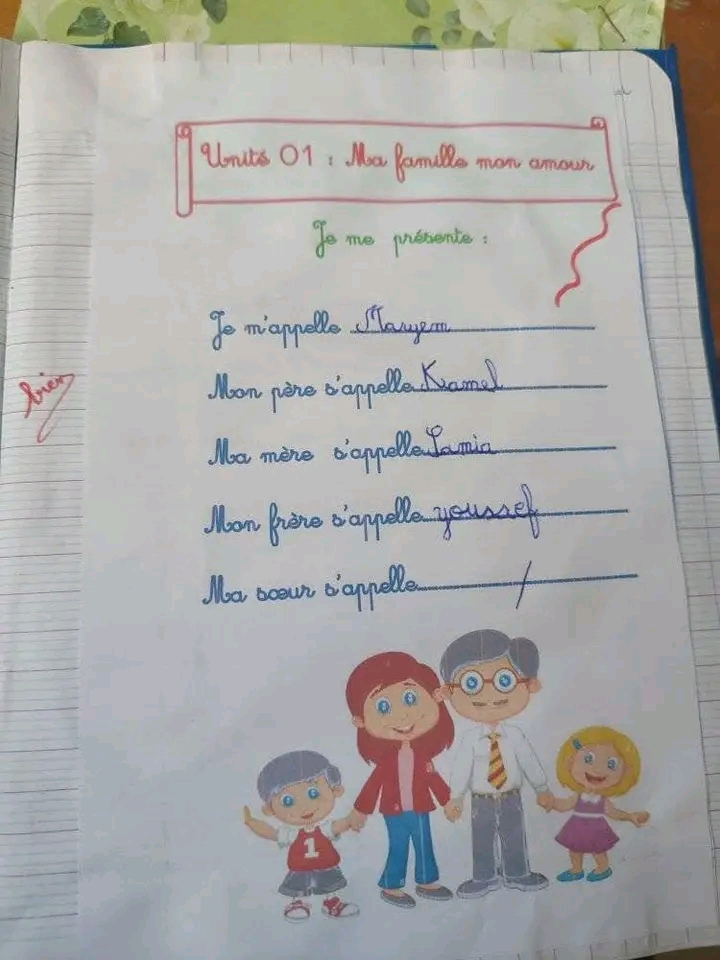 Unité 01 : Ma famille mon amour
Je me présente :
Je m'appelle Maryem
Mon père s'appelle Kamel
Ma mère s'appelle Lamia
bien
Mon frère s'appelle youssef
Ma sœur s'appelle /
1